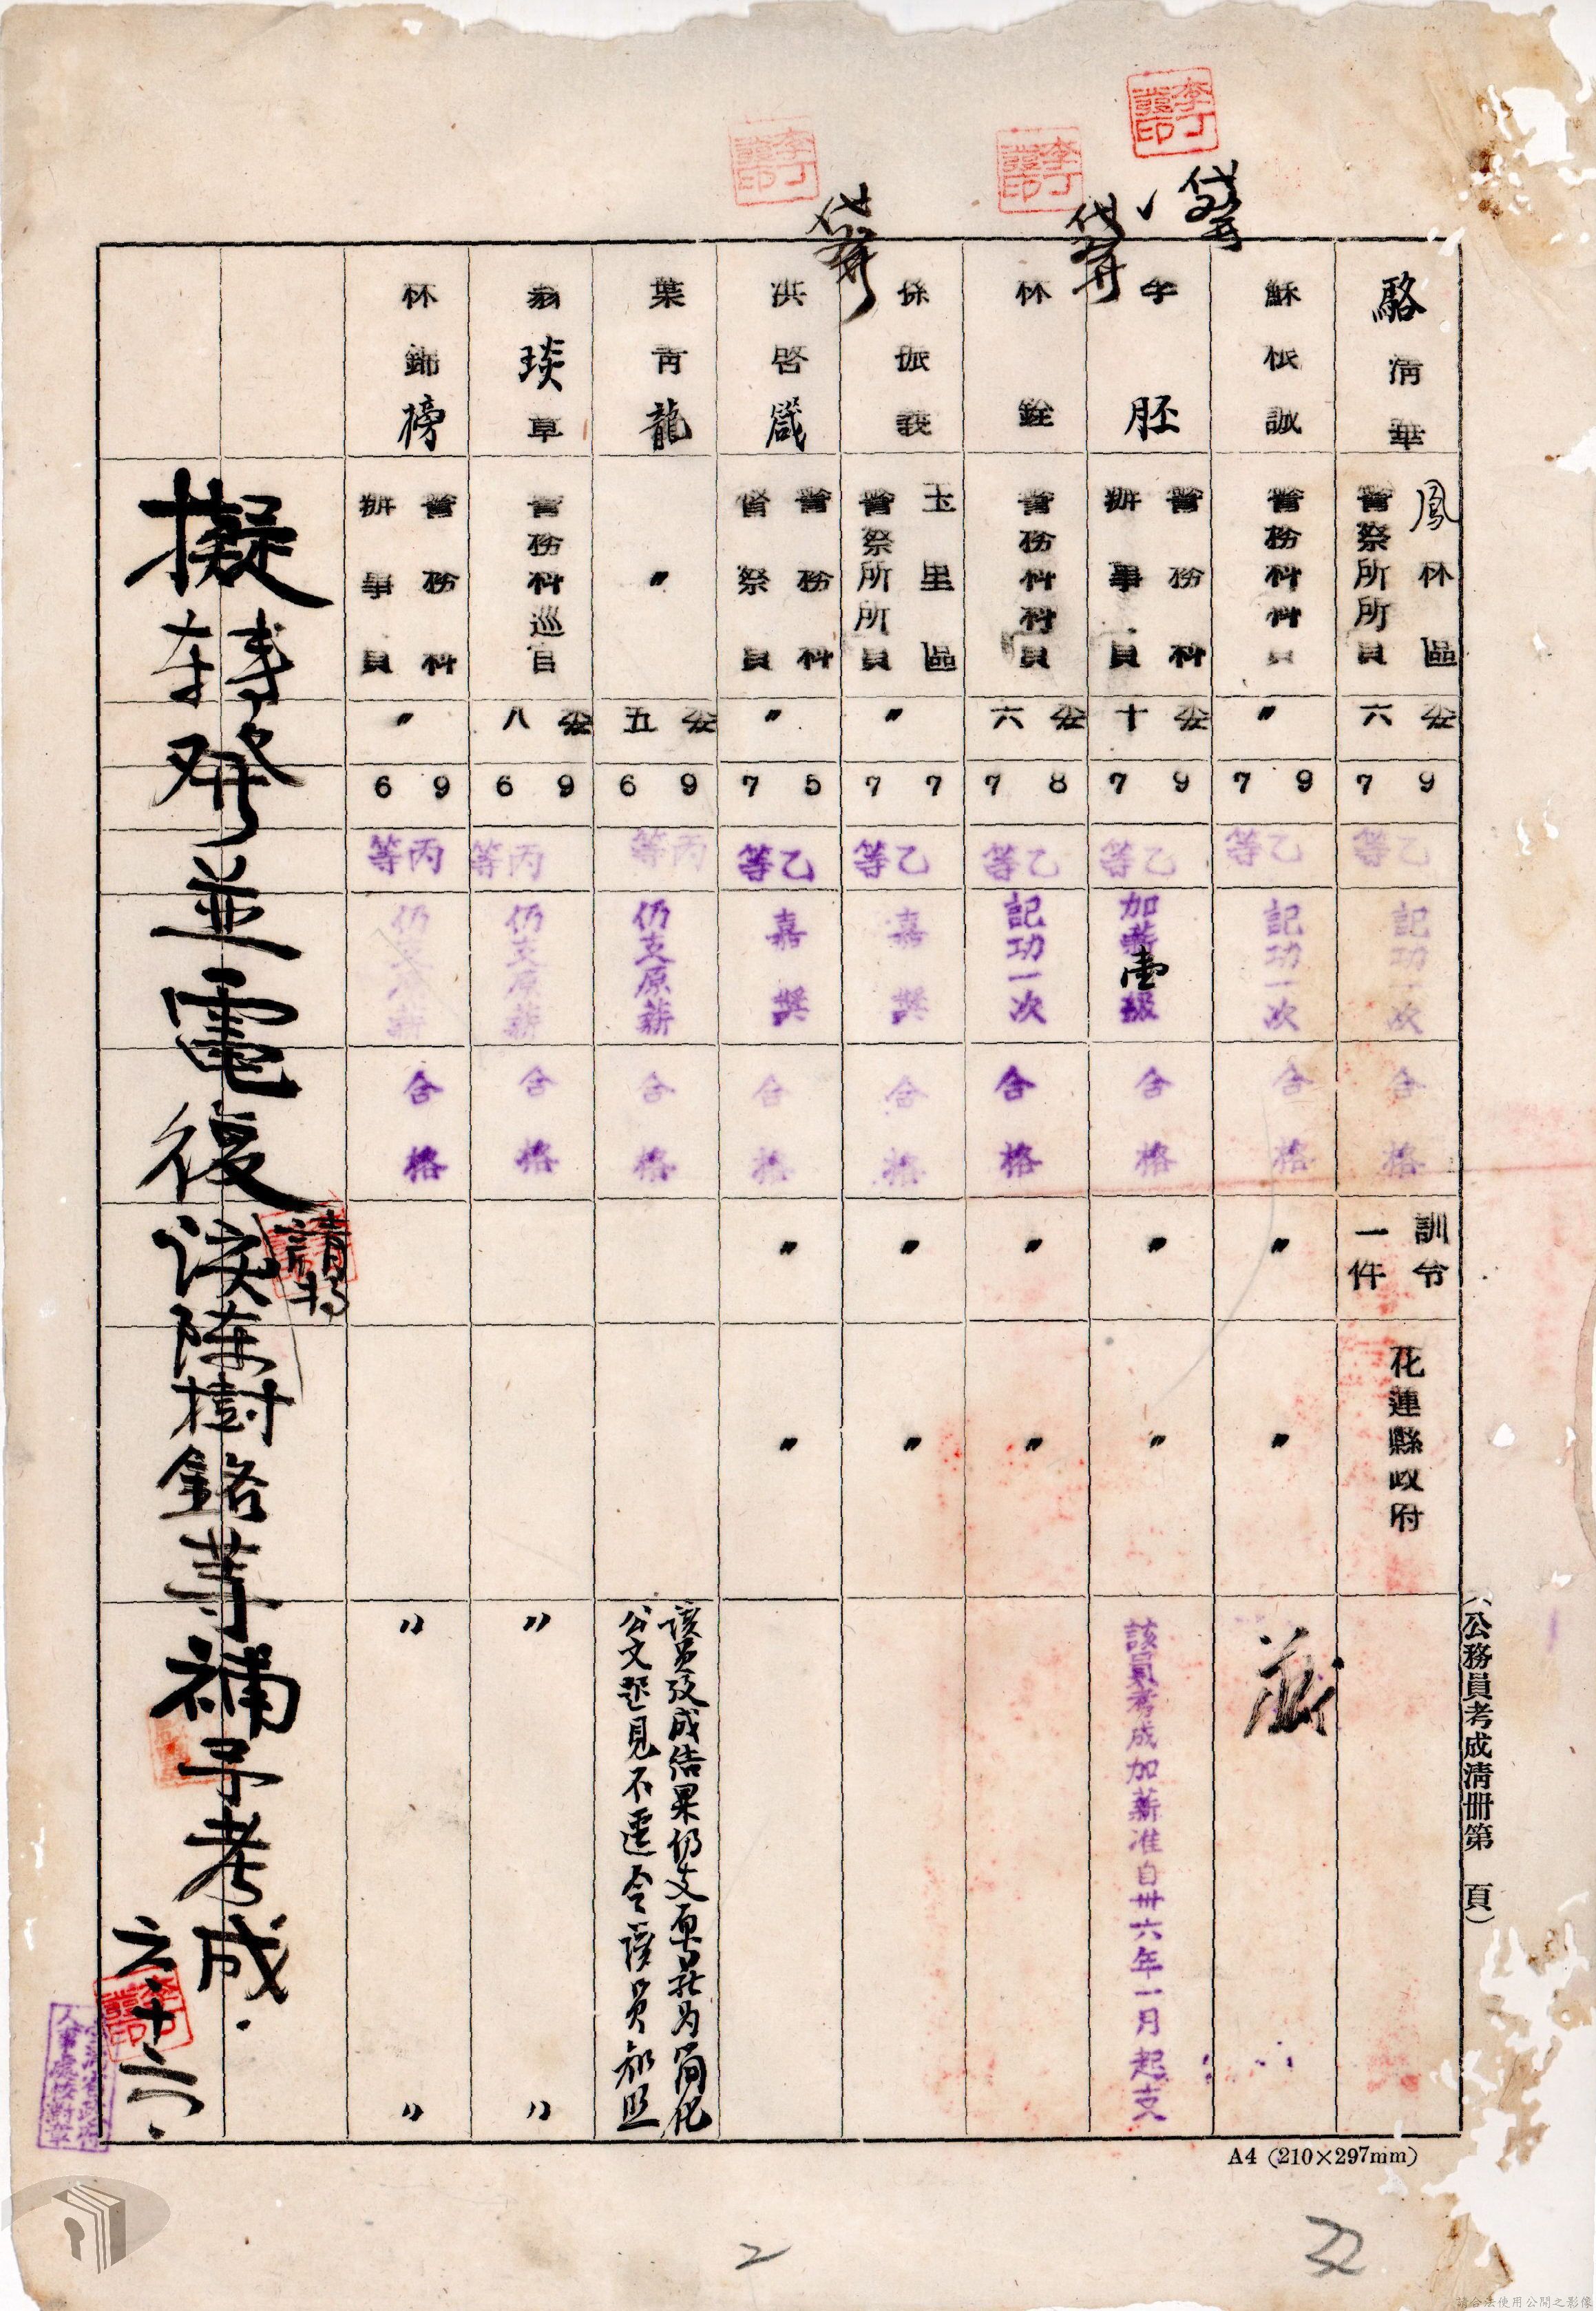 駱清華
鳳林區
警察所所員
委六
79
乙等
記功一次
合格
訓令一件
花蓮縣政府
蘇根誠
警務科科員
〃
79
乙等
記功一次
合格
〃
〃
胚
警務科
辦事員
委十
79
乙等
加薪壹級
合格
〃
〃
該員考成加薪准自卅六年一月起支
林銓
警務科科員
委六
78
乙等
記功一次
合格
〃
〃
孫振義
玉里區
警察所所員
〃
77
乙等
嘉獎
合格
〃
〃
洪啓箴
警務科
督察員
〃
75
乙等
嘉獎
合格
〃
〃
葉青龍
〃
委五
69
丙等
仍支原薪
合格
該員考成結果仍支原薪為簡化
公文起見不逕令該員知照
翁琰草
警務科巡官
委八
69
丙等
仍支原薪
合格
〃
〃
林錦榜
警務科
辦事員
〃
69
丙等
仍支原薪
合格
〃
〃
擬轉發並電復請將
陳樹銘等補予考成
六、十六、
(公務員考成清冊第　頁)
A4 (210×297mm)
2
22
請合法使用公開之影像